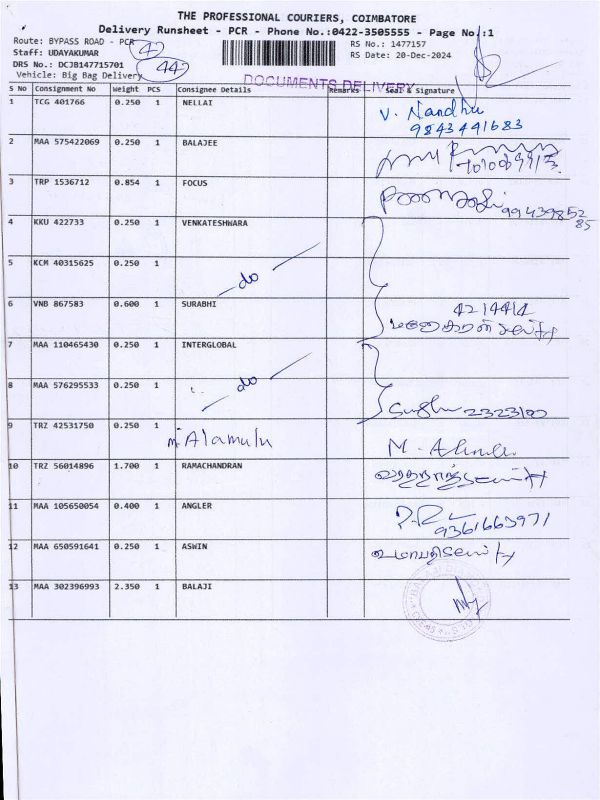 THE PROFESSIONAL COURIERS, COIMBATORE
Delivery Runsheet - PCR - Phone No.:0422-3505555 - Page No.:1
Route: BYPASS ROAD - PCR
42
RS No.: 1477157
Staff: UDAYAKUMAR
RS Date: 20-Dec-2024
DRS No.: DCJB147715701
442
Vehicle: Big Bag Delivery
DOCUMENTS DELIVERY
S No Consignment No Weight PCS Consignee Details Remarks Seal & Signature
1 TCG 401766 0.250 1 NELLAI V. Nandhu
9843441683
2 MAA 575422069 0.250 1 BALAJEE
3 TRP 1536712 0.854 1 FOCUS
9943985285
4 KKU 422733 0.250 1 VENKATESHWARA
5 KCM 40315625 0.250 1 do
6 VNB 867583 0.600 1 SURABHI 4214414
7 MAA 110465430 0.250 1 INTERGLOBAL
8 MAA 576295533 0.250 1 do
2323100
9 TRZ 42531750 0.250 1 m. Alamulu
10 TRZ 56014896 1.700 1 RAMACHANDRAN
11 MAA 105650054 0.400 1 ANGLER
9361663971
12 MAA 650591641 0.250 1 ASWIN
13 MAA 302396993 2.350 1 BALAJI